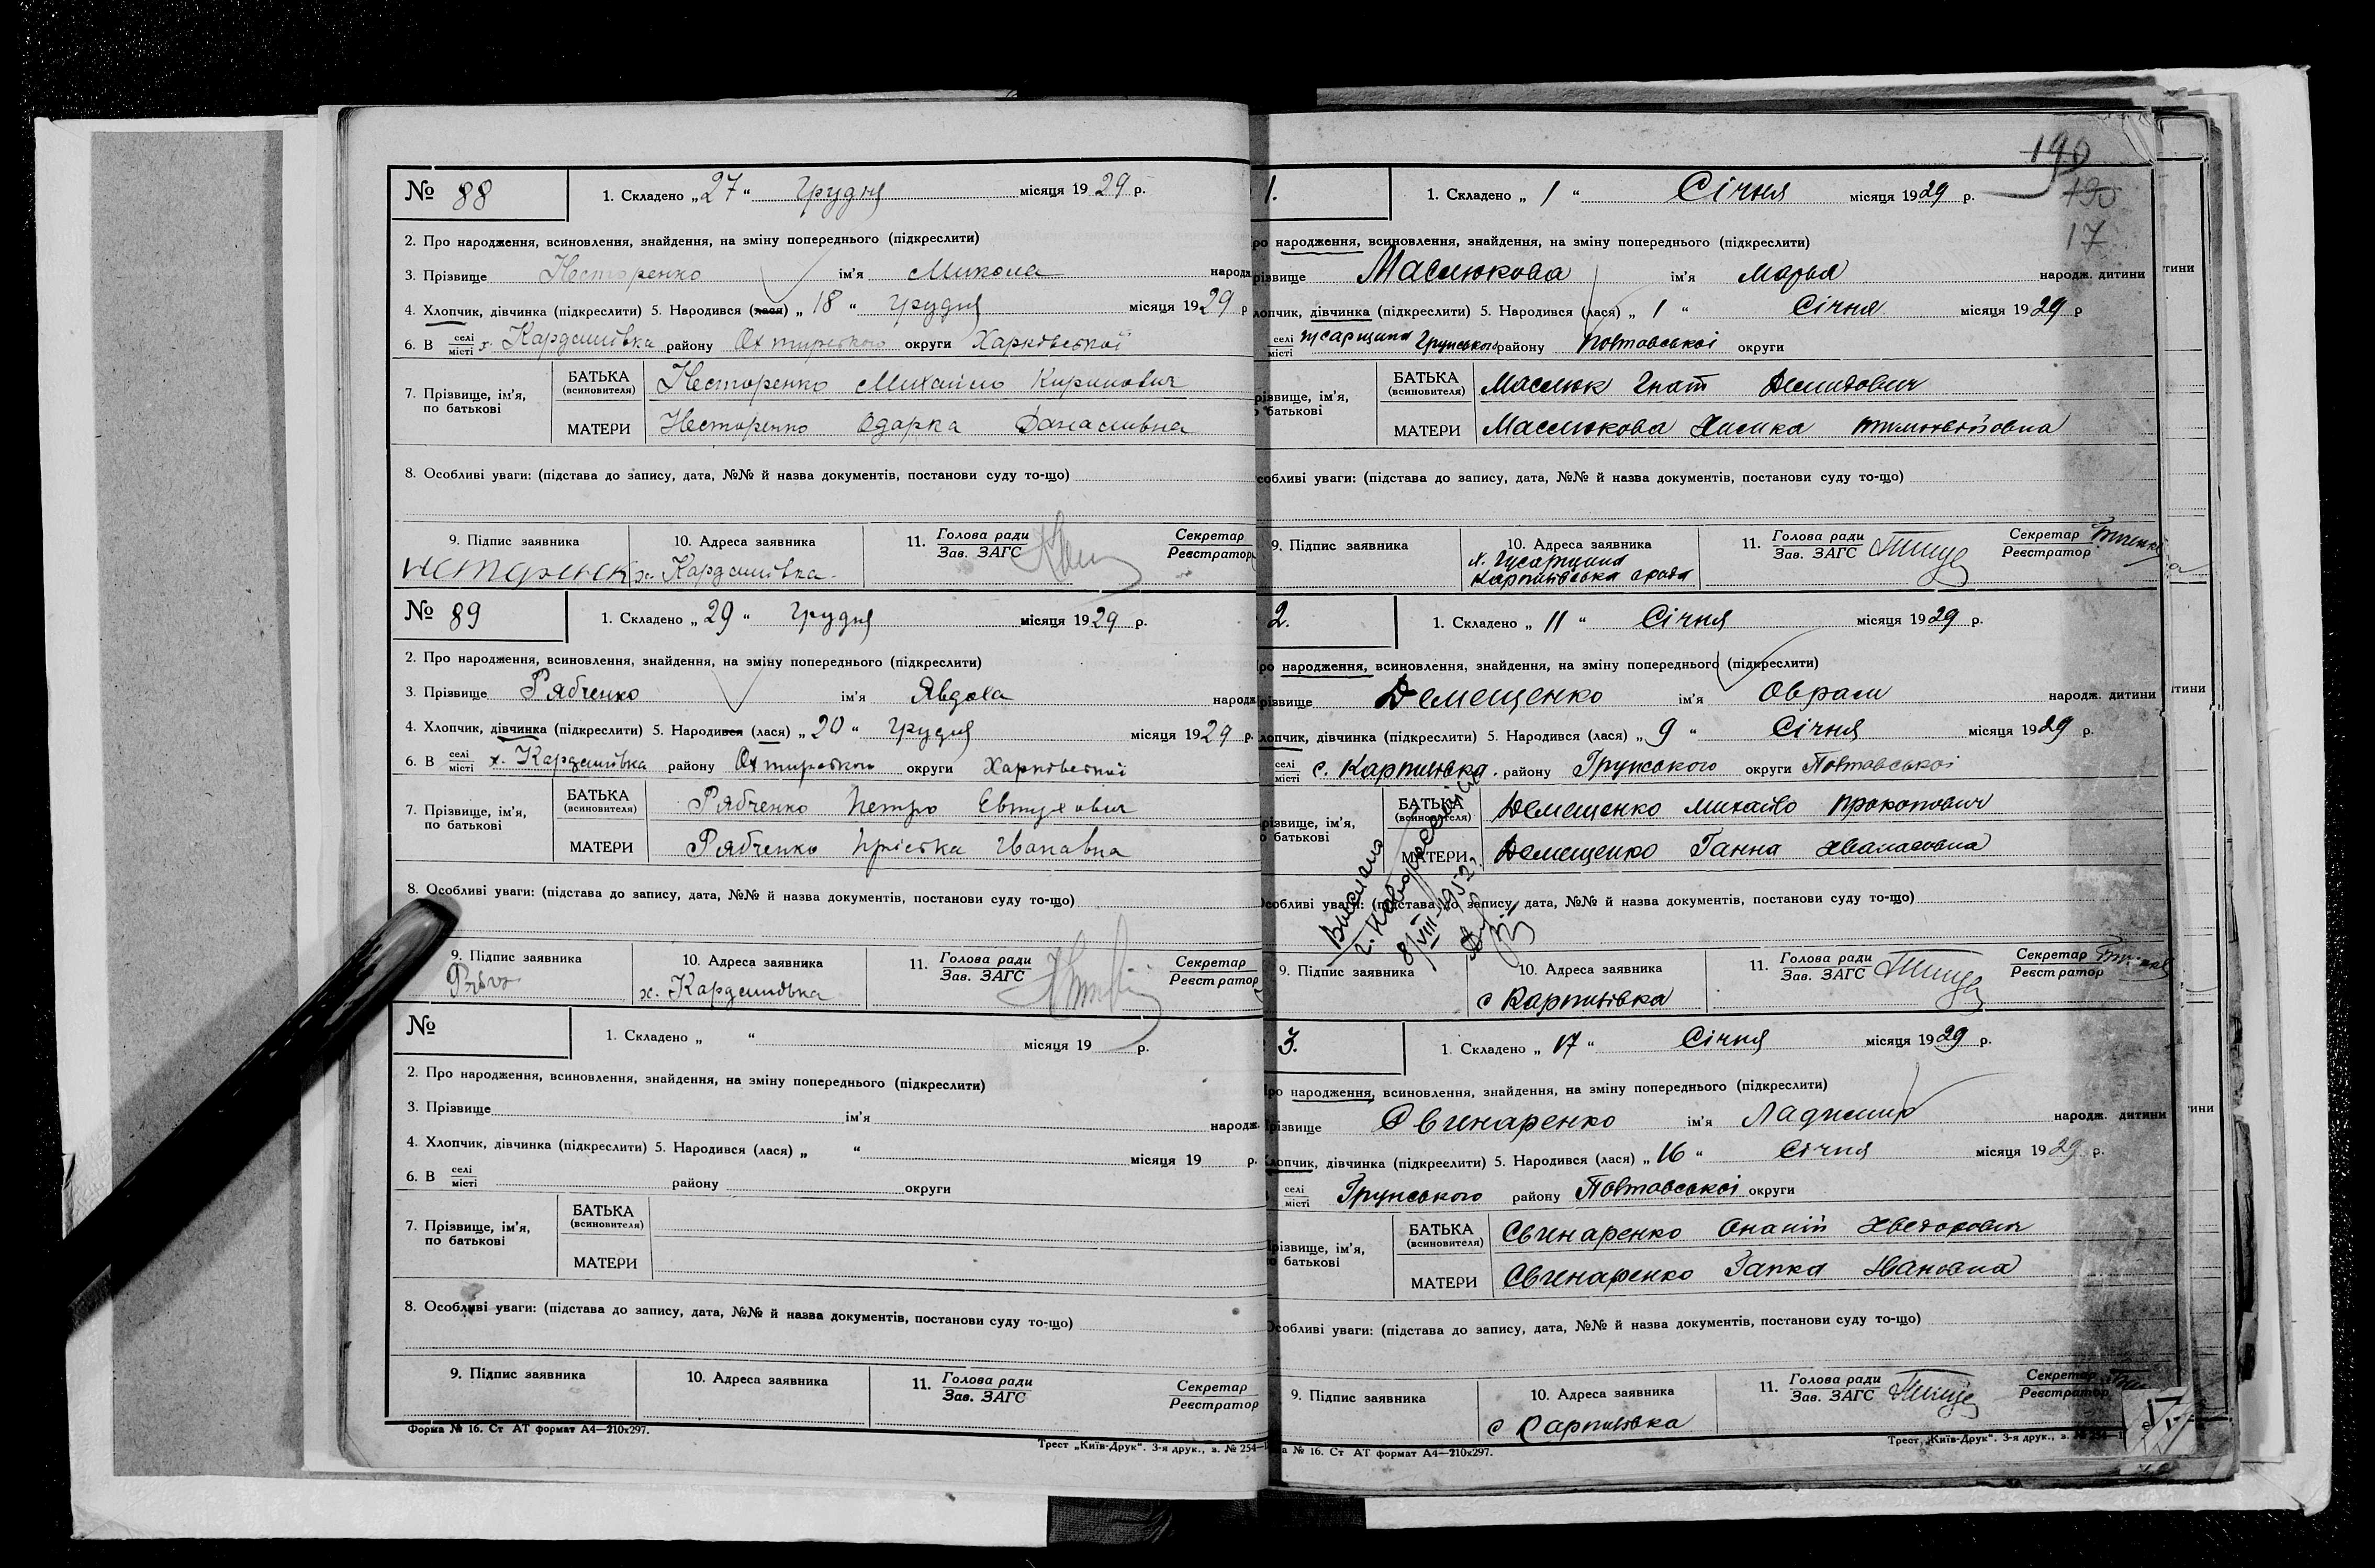 № 88
1. Складено „27“ грудня місяця 1929 р.
2. Про народження, всиновлення, знайдення, на зміну попереднього (підкреслити)
3. Прізвище Несторенко ім'я Микола народж
4. Хлопчик, дівчинка (підкреслити) 5. Народився (лася) „18“ грудня місяця 1929 р
6. В селі місті х. Кардашівка району Охтирського округи Харківської
7. Прізвище, ім'я, по батькові
БАТЬКА (всиновителя) Несторенко Михайло Кирилович
МАТЕРИ Несторенко Одарка
8. Особливі уваги: (підстава до запису, дата, №№ й назва документів, постанови суду то-що)
9. Підпис заявника 10. Адреса заявника 11. Голова ради Зав. ЗАГС Секретар Реєстратор
х. Кардашівка
№ 89
1. Складено „29“ грудня місяця 1929 р.
2. Про народження, всиновлення, знайдення, на зміну попереднього (підкреслити)
3. Прізвище Рябченко ім'я Явдоха народж
4. Хлопчик, дівчинка (підкреслити) 5. Народився (лася) „20“ грудня місяця 1929 р.
6. В селі місті х. Кардашівка району Охтирського округи Харківської
7. Прізвище, ім'я, по батькові
БАТЬКА (всиновителя) Рябченко Петро Евтухович
МАТЕРИ Рябченко Пріська Іванавна
8. Особливі уваги: (підстава до запису, дата, №№ й назва документів, постанови суду то-що)
9. Підпис заявника 10. Адреса заявника 11. Голова ради Зав. ЗАГС Секретар Реєстратор
х. Кардашівка
№
1. Складено „ “ місяця 19 р.
2. Про народження, всиновлення, знайдення, на зміну попереднього (підкреслити)
3. Прізвище ім'я народж.
4. Хлопчик, дівчинка (підкреслити) 5. Народився (лася) „ “ місяця 19 р.
6. В селі місті району округи
7. Прізвище, ім'я, по батькові
БАТЬКА (всиновителя)
МАТЕРИ
8. Особливі уваги: (підстава до запису, дата, №№ й назва документів, постанови суду то-що)
9. Підпис заявника 10. Адреса заявника 11. Голова ради Зав. ЗАГС Секретар Реєстратор
Форма № 16. Ст АТ формат А4—210х297.
Трест „Київ-Друк“. 3-я друк., з. № 254—
190
190
17
1.
1. Складено „1“ Січня місяця 1929 р.
ро народження, всиновлення, знайдення, на зміну попереднього (підкреслити)
різвище Маслюкова ім'я Марья народж. дитини
лопчик, дівчинка (підкреслити) 5. Народився (лася) „1“ Січня місяця 1929 р
селі місті Гусарщина Грунського району Полтавської округи
різвище, ім'я, батькові
БАТЬКА (всиновителя) Маслюк Гнат Демидович
МАТЕРИ Маслюкова
собливі уваги: (підстава до запису, дата, №№ й назва документів, постанови суду то-що)
9. Підпис заявника 10. Адреса заявника 11. Голова ради Зав. ЗАГС Секретар Реєстратор
х. Гусарщина
Карпилівська
2.
1. Складено „11“ Січня місяця 1929 р.
ро народження, всиновлення, знайдення, на зміну попереднього (підкреслити)
різвище Демещенко ім'я Оврам народж. дитини
лопчик, дівчинка (підкреслити) 5. Народився (лася) „9“ Січня місяця 1929 р.
селі місті с. Карпилівка. району Грунського округи Полтавської
різвище, ім'я, батькові
БАТЬКА (всиновителя) Демещенко Михайло Прокопович
МАТЕРИ Демещенко Ганна
собливі уваги: (підстава до запису, дата, №№ й назва документів, постанови суду то-що)
Выслано
8/VIII-1952
9. Підпис заявника 10. Адреса заявника 11. Голова ради Зав. ЗАГС Секретар Реєстратор
с Карпилівка
3.
1. Складено „17“ Січня місяця 1929 р.
ро народження, всиновлення, знайдення, на зміну попереднього (підкреслити)
різвище Овчинаренко ім'я народж. дитини
лопчик, дівчинка (підкреслити) 5. Народився (лася) „16“ Січня місяця 1929 р.
селі місті Грунського району Полтавської округи
різвище, ім'я, батькові
БАТЬКА (всиновителя) Овчинаренко Онаній
МАТЕРИ Овчинаренко Гапка Ивановна
собливі уваги: (підстава до запису, дата, №№ й назва документів, постанови суду то-що)
9. Підпис заявника 10. Адреса заявника 11. Голова ради Зав. ЗАГС Секретар Реєстратор
с Карпилівка
№ 16. Ст АТ формат А4—210х297.
Трест „Київ-Друк“. 3-я друк., з.